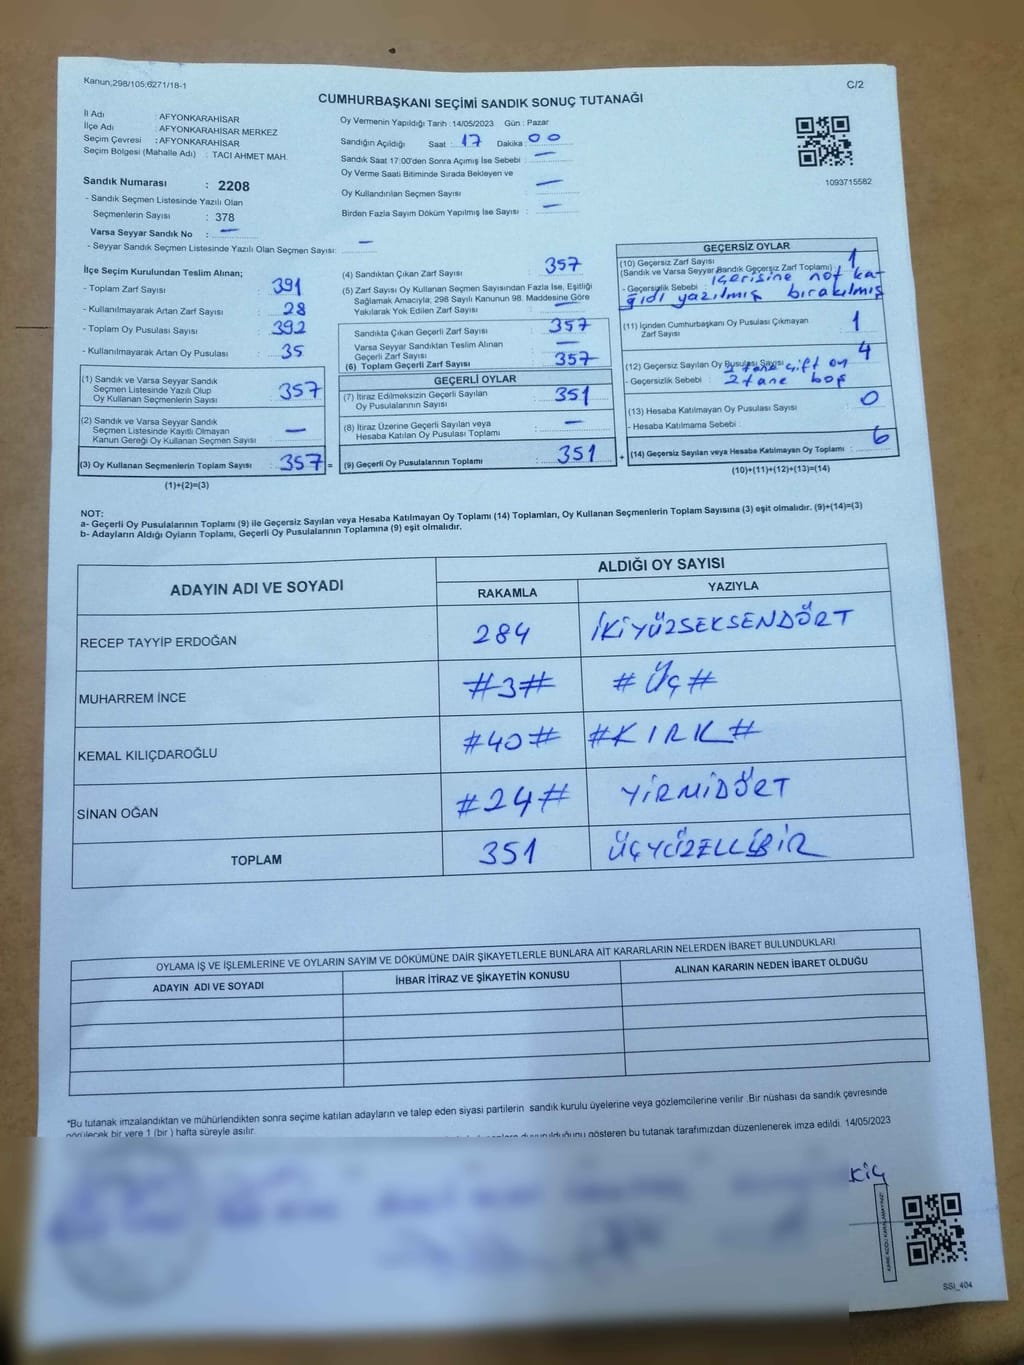 Kanun;298/105;6271/18-1
C/2
CUMHURBAŞKANI SEÇİMİ SANDIK SONUÇ TUTANAĞI
İl Adı : AFYONKARAHİSAR
İlçe Adı : AFYONKARAHİSAR MERKEZ
Seçim Çevresi : AFYONKARAHİSAR
Seçim Bölgesi (Mahalle Adı) : TACI AHMET MAH.
Sandık Numarası : 2208
- Sandık Seçmen Listesinde Yazılı Olan
Seçmenlerin Sayısı : 378
Varsa Seyyar Sandık No : —
- Seyyar Sandık Seçmen Listesinde Yazılı Olan Seçmen Sayısı: —
Oy Vermenin Yapıldığı Tarih : 14/05/2023 Gün : Pazar
Sandığın Açıldığı Saat : 17 Dakika : 00
Sandık Saat 17:00'den Sonra Açımış İse Sebebi : —
Oy Verme Saati Bitiminde Sırada Bekleyen ve
Oy Kullandırılan Seçmen Sayısı : —
Birden Fazla Sayım Döküm Yapılmış İse Sayısı : —
1093715582
İlçe Seçim Kurulundan Teslim Alınan;
- Toplam Zarf Sayısı : 391
- Kullanılmayarak Artan Zarf Sayısı : 28
- Toplam Oy Pusulası Sayısı : 392
- Kullanılmayarak Artan Oy Pusulası : 35
(1) Sandık ve Varsa Seyyar Sandık
Seçmen Listesinde Yazılı Olup
Oy Kullanan Seçmenlerin Sayısı : 357
(2) Sandık ve Varsa Seyyar Sandık
Seçmen Listesinde Kayıtlı Olmayan
Kanun Gereği Oy Kullanan Seçmen Sayısı : —
(3) Oy Kullanan Seçmenlerin Toplam Sayısı : 357 =
(1)+(2)=(3)
(4) Sandıktan Çıkan Zarf Sayısı : 357
(5) Zarf Sayısı Oy Kullanan Seçmen Sayısından Fazla İse, Eşitliği
Sağlamak Amacıyla; 298 Sayılı Kanunun 98. Maddesine Göre
Yakılarak Yok Edilen Zarf Sayısı : —
Sandıkta Çıkan Geçerli Zarf Sayısı : 357
Varsa Seyyar Sandıktan Teslim Alınan
Geçerli Zarf Sayısı : —
(6) Toplam Geçerli Zarf Sayısı : 357
GEÇERLİ OYLAR
(7) İtiraz Edilmeksizin Geçerli Sayılan
Oy Pusulalarının Sayısı : 351
(8) İtiraz Üzerine Geçerli Sayılan veya
Hesaba Katılan Oy Pusulası Toplamı : —
(9) Geçerli Oy Pusulalarının Toplamı : 351 +
GEÇERSİZ OYLAR
(10) Geçersiz Zarf Sayısı : 1
(Sandık ve Varsa Seyyar Sandık Geçersiz Zarf Toplamı)
- Geçersizlik Sebebi : içerisine not ka-
ğıdı yazılmış bırakılmış
(11) İçinden Cumhurbaşkanı Oy Pusulası Çıkmayan
Zarf Sayısı : 1
(12) Geçersiz Sayılan Oy Pusulası Sayısı : 4
2 tane çift oy
- Geçersizlik Sebebi : 2 tane boş
(13) Hesaba Katılmayan Oy Pusulası Sayısı : 0
- Hesaba Katılmama Sebebi :
(14) Geçersiz Sayılan veya Hesaba Katılmayan Oy Toplamı : 6
(10)+(11)+(12)+(13)=(14)
NOT:
a- Geçerli Oy Pusulalarının Toplamı (9) ile Geçersiz Sayılan veya Hesaba Katılmayan Oy Toplamı (14) Toplamları, Oy Kullanan Seçmenlerin Toplam Sayısına (3) eşit olmalıdır. (9)+(14)=(3)
b- Adayların Aldığı Oyların Toplamı, Geçerli Oy Pusulalarının Toplamına (9) eşit olmalıdır.
ADAYIN ADI VE SOYADI
ALDIĞI OY SAYISI
RAKAMLA YAZIYLA
RECEP TAYYİP ERDOĞAN 284 İKİYÜZSEKSENDÖRT
MUHARREM İNCE #3# #Üç#
KEMAL KILIÇDAROĞLU #40# #KIRK#
SİNAN OĞAN #24# YİRMİDÖRT
TOPLAM 351 ÜÇYÜZELLİBİR
OYLAMA İŞ VE İŞLEMLERİNE VE OYLARIN SAYIM VE DÖKÜMÜNE DAİR ŞİKAYETLERLE BUNLARA AİT KARARLARIN NELERDEN İBARET BULUNDUKLARI
ADAYIN ADI VE SOYADI İHBAR İTİRAZ VE ŞİKAYETİN KONUSU ALINAN KARARIN NEDEN İBARET OLDUĞU
*Bu tutanak imzalandıktan ve mühürlendikten sonra seçime katılan adayların ve talep eden siyasi partilerin sandık kurulu üyelerine veya gözlemcilerine verilir .Bir nüshası da sandık çevresinde
görülecek bir yere 1 (bir ) hafta süreyle asılır.
duyurulduğunu gösteren bu tutanak tarafımızdan düzenlenerek imza edildi. 14/05/2023
KARE KODU KARALAMAYINIZ!
SSI_404